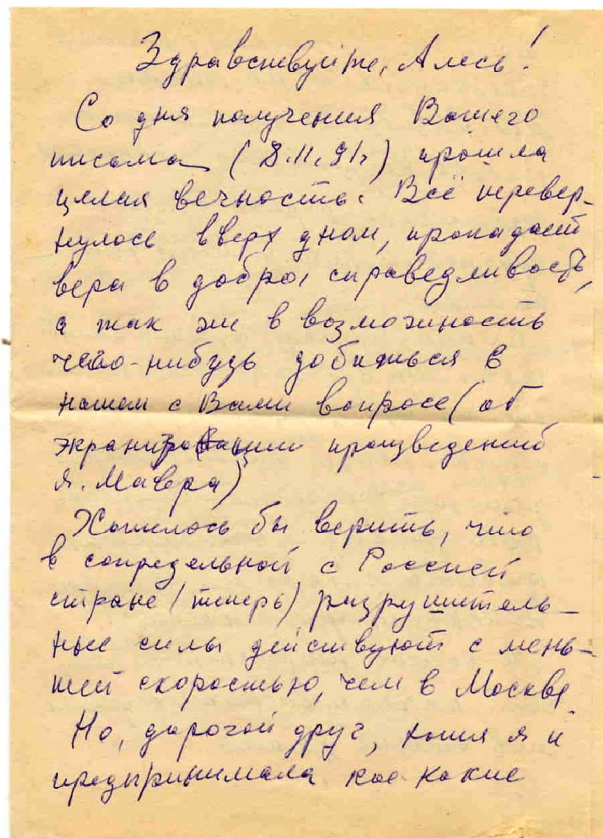 Здравствуйте, Алесь!
Со дня получения Вашего
письма (8.11.91г) прошла
целая вечность. Всё перевер-
нулось вверх дном, пропадает
вера в добро, справедливость,
а так же в возможность
чего-нибудь добиться в
нашем с Вами вопросе (об
произведений
Я. Мавра)
Хотелось бы верить, что
в сопредельной с Россией
стране (теперь) разрушитель-
ные силы действуют с мень-
шей скоростью, чем в Москве.
Но, дорогой друг, хотя я и
предпринимала кое какие